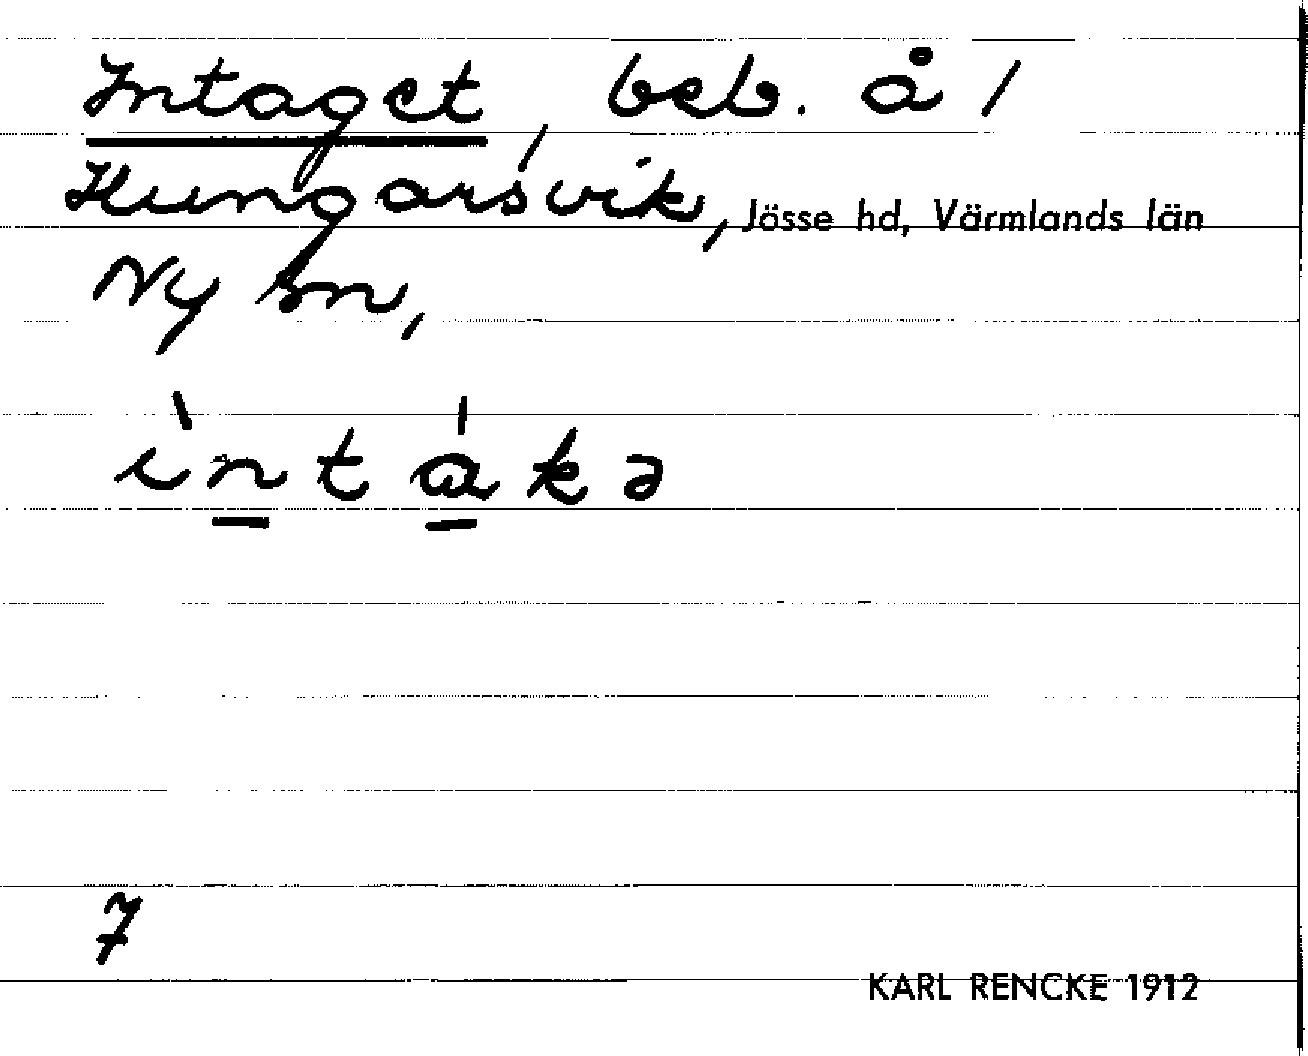 Intaget, beb. å /
Hungarsvik, Jösse hd, Värmlands län
Ny sn,
ìntákə
7
KARL RENCKE 1912